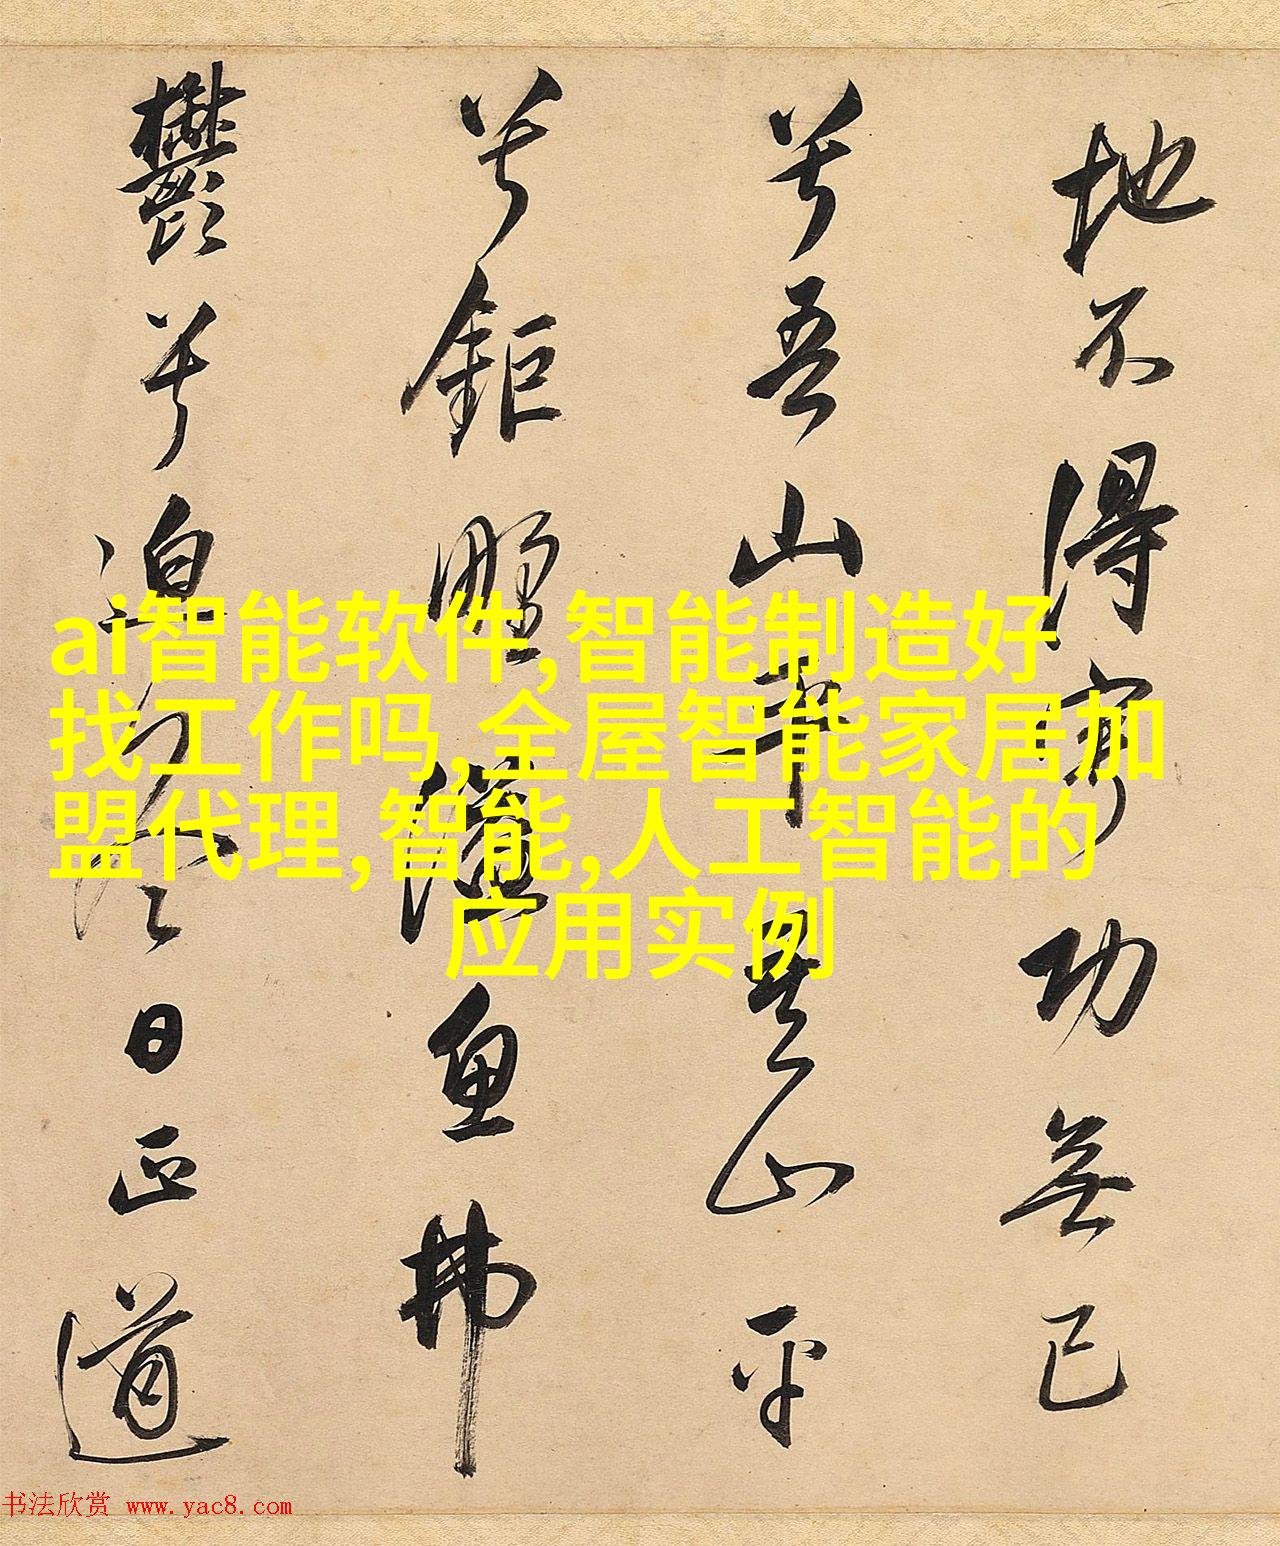 地不得寧功無已
兮吾山平吾山平
兮鉅野溢魚弗
鬱兮迫冬日正道
ai智能软件,智能制造好
找工作吗,全屋智能家居加
盟代理,智能,人工智能的
应用实例
书法欣赏 www.yac8.com